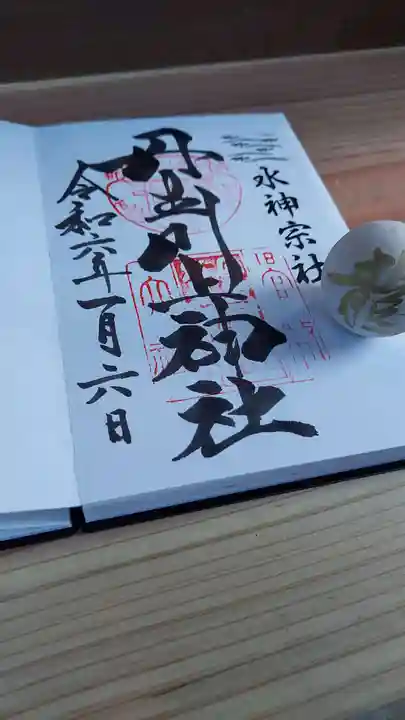 水神宗社
丹生川上神社
令和六年一月六日